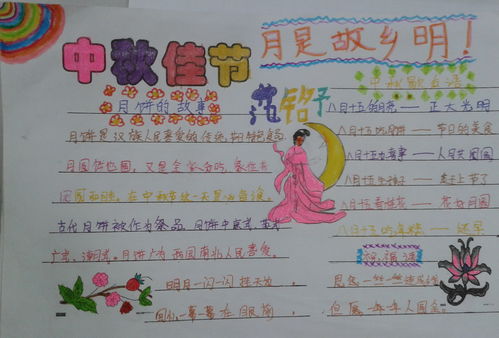 中秋佳节
月是故乡明！
月饼的故事
月饼是汉族人民喜爱的传统节日特色食品
月圆饼也圆，又是全家分吃，象征
团圆和睦，在中秋节这一天是必食
古代月饼被作为祭品
广式、潮式，月饼广为我国南北人民喜爱。
明月一闪闪挂天边
一幕幕在眼前
中秋歇后语
八月十五的月亮——正大光明
八月十五吃月饼——节日的美食
八月十五办喜事——人月共团圆
八月十五——赶上节了
八月十五看桂花——花好月圆
八月十五——还早
祝福语
思念一丝一丝
但愿一年年人团圆。